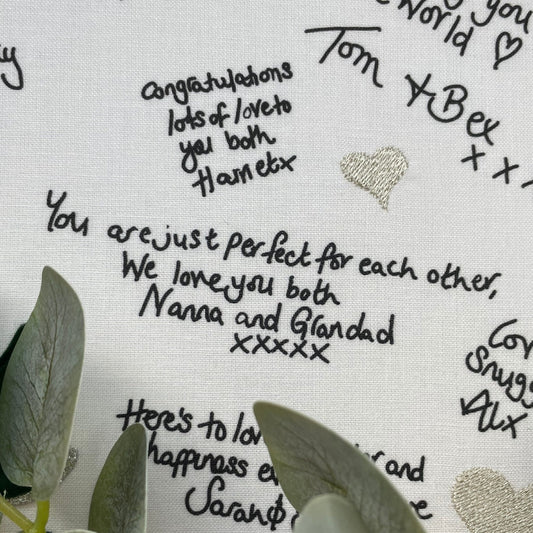 you
World ♡
Tom & Bex
x x x
Congratulations
lots of love to
you both
Harriet x
You are just perfect for each other,
We love you both
Nanna and Grandad
xxxxx
Alx
Here's to lo and
happiness
Sarah